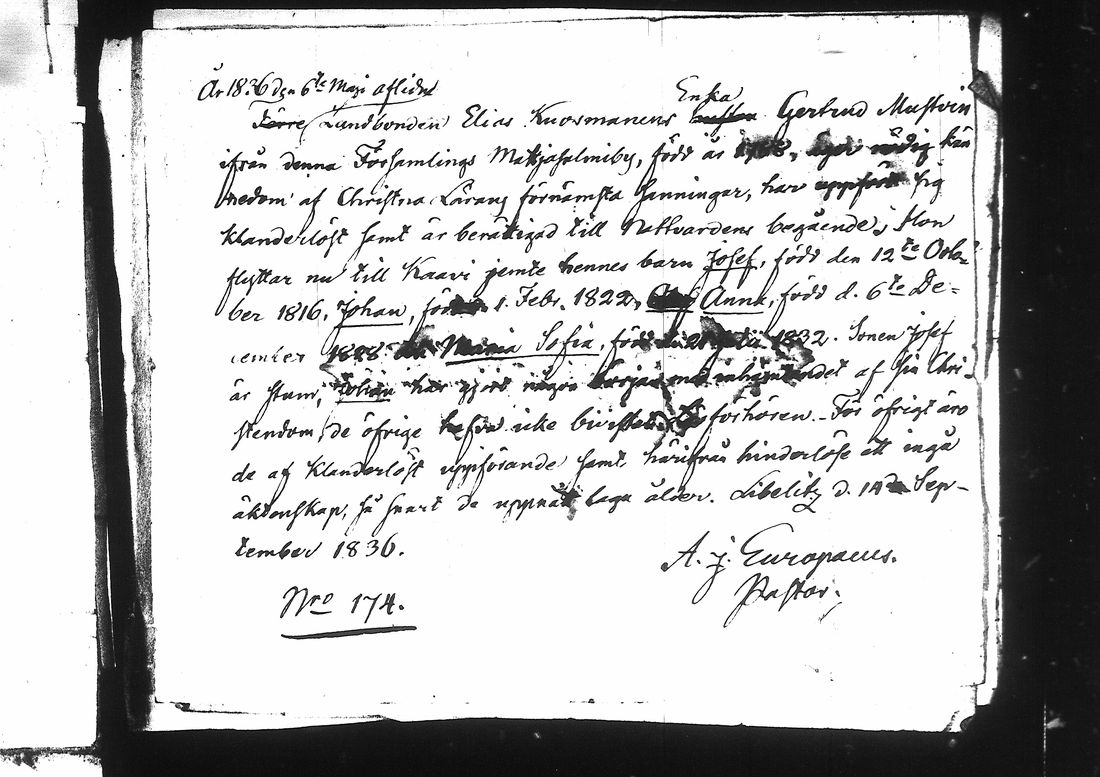 År 1836 den 6te Maji aflidne
Förre Landbonden Elias Kuosmanens Enka Gertrud Mustvin
ifrån denna Församlings Mattjasalmiby, född år äger nödig kän
nedom af Christna Lärans förnämsta sanningar, har uppfört sig
klanderlöst samt är berättigad till Nattvardens begående; Hon
flyttar nu till Kaavi jemte hennes barn Josef, född den 12te Octo-
ber 1816, Johan, född 1. Febr. 1822, Anna, född d. 6te De-
cember 1828 Maria Sofia, född 1832. Sonen Josef
är stum, Johan har gjort någon början med inhämtandet af sin Chri-
stendom, de öfrige hafva icke bivistat Läsforhören. För öfrigt äro
de af klanderlöst uppförande samt härifrån hinderlöse att ingå
äktenskap, så snart de uppnått laga ålder. Libelitz d. 14de Sep-
tember 1836.
A. J. Europaeus.
Pastor.
Nro 174.